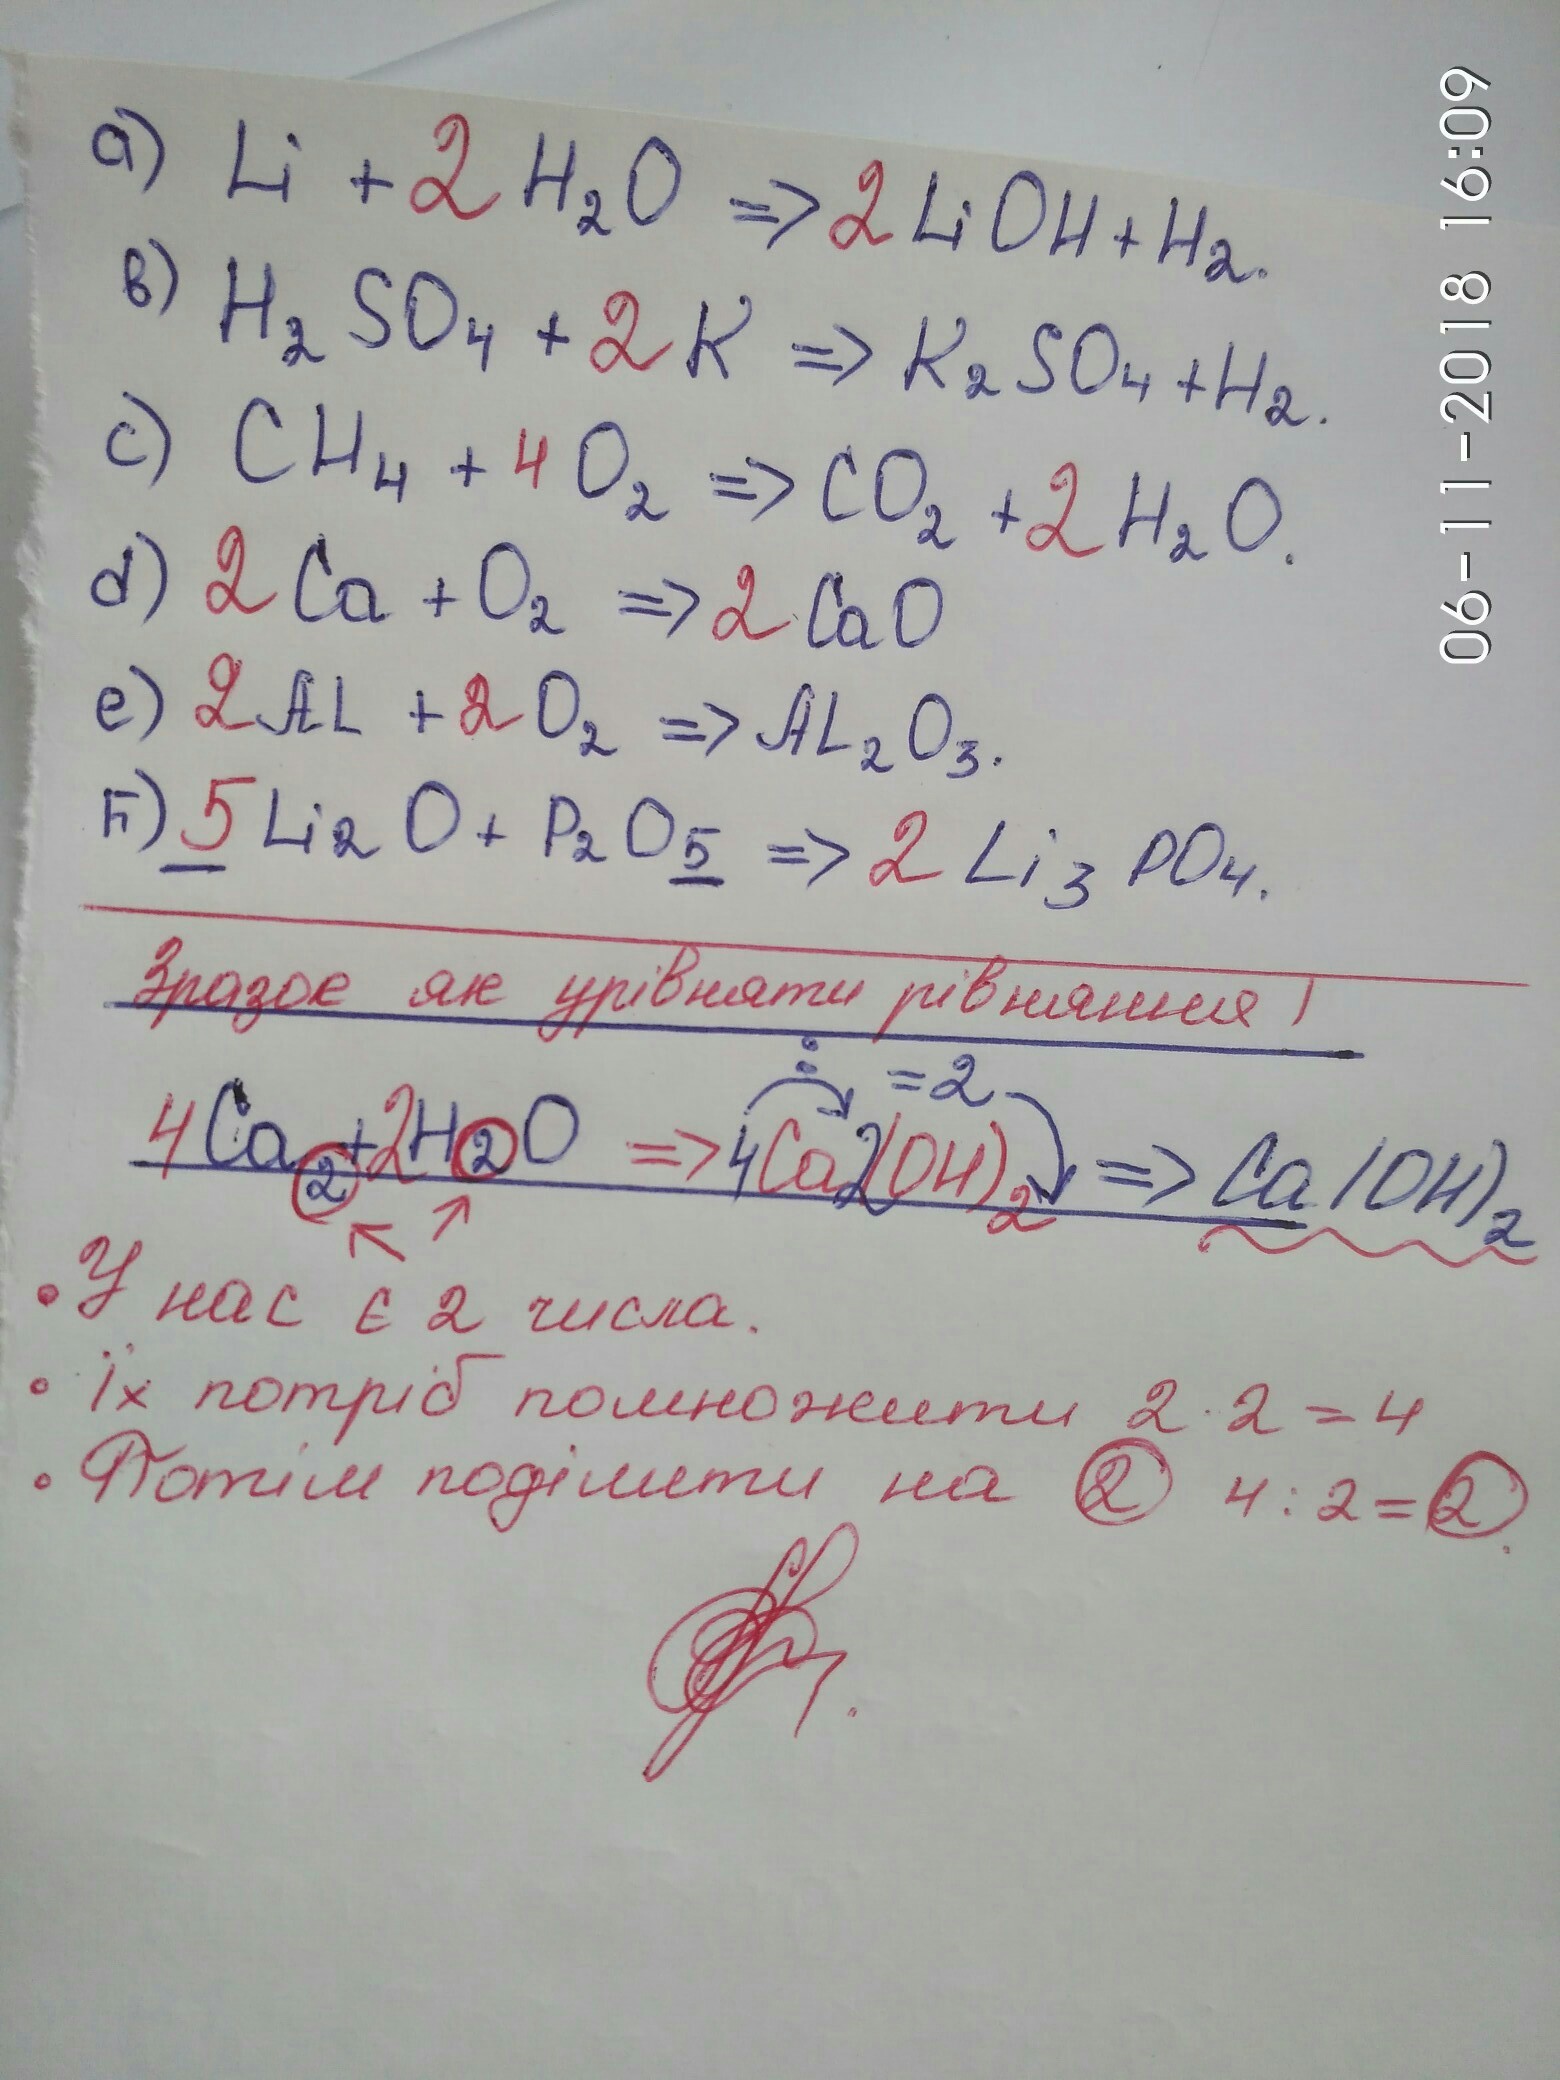 a) Li + 2H₂O => 2LiOH + H₂.
в) H₂SO₄ + 2K => K₂SO₄ + H₂.
c) CH₄ + 4O₂ => CO₂ + 2H₂O.
d) 2Ca + O₂ => 2CaO
e) 2AL + 2O₂ => AL₂O₃.
F) 5Li₂O + P₂O₅ => 2Li₃PO₄.
Зразок як урівняти рівняння!
: = 2
4Ca₂ + 2H₂O => 4Ca2(OH)₂ => Ca(OH)₂
• У нас є 2 числа.
• Їх потріб помножити 2·2=4
• Потім поділити на 2 4:2=2.
06-11-2018 16:09